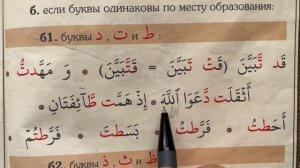 б. если буквы одинаковы по месту образования:
б1. буквы ط и ت ، د :
قَد تَّبَيَّنَ (قَتْ تَبَيَّنَ = قَتَّبَيَّنَ) وَ مَهَّدتُّ
أَثْقَلَت دَّعَوَا اللَّهَ إِذْ هَمَّت طَّآئِفَتَانِ
أَحَطتُ فَرَّطتُ بَسَطتَ فَرَّطتُمْ
б2. буквы ظ и ث ، ذ :